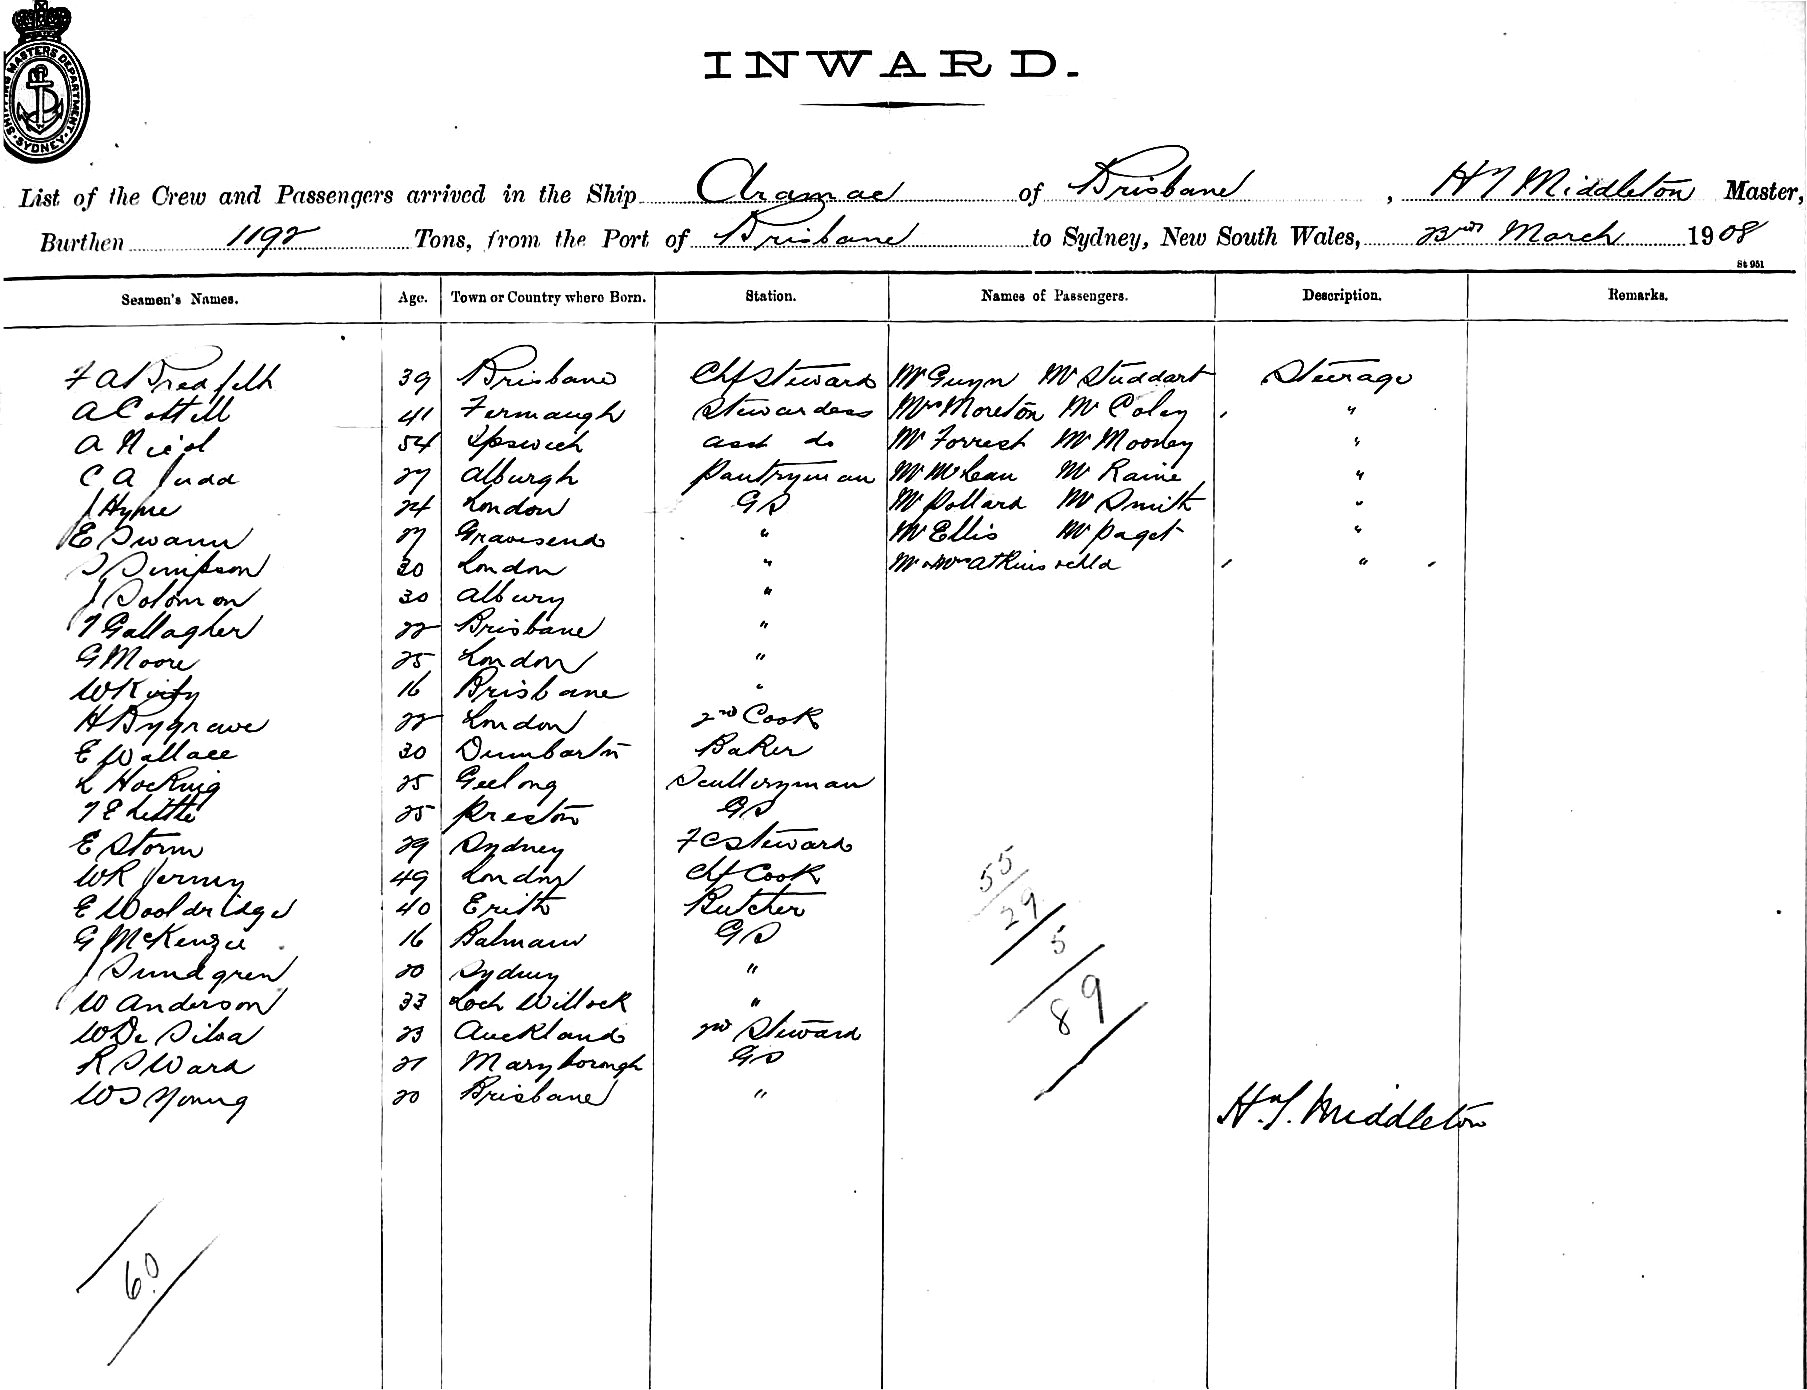 SHIPPING MASTERS DEPARTMENT. SYDNEY.
INWARD.
List of the Crew and Passengers arrived in the Ship Aramac of Brisbane, H T Middleton Master,
Burthen 1192 Tons, from the Port of Brisbane to Sydney, New South Wales, 23rd March 1908
St 951
Seamen's Names. Age. Town or Country where Born. Station. Names of Passengers. Description. Remarks.
F A 39 Brisbane Chf Steward Mr Gwyn Mr Studdart Steerage
A Cottell 41 Fermaugh Stewardess Mrs Moreton Mr Coley "
A Nicol 54 Ipswich asst do Mr Forrest Mr Mooney "
C A Judd 27 Alburgh Pantryman Mr McLean Mr Raine "
J Hyne 24 London GS Mr Pollard Mr Smith "
E Swann 27 Gravesend " Mr Ellis Mr Paget "
T Simpson 30 London " Mr & Mrs Atkins & chld "
J Solomon 30 Albury "
T Gallagher 22 Brisbane "
G Moore 25 London "
W Kirby 16 Brisbane "
H Bygrave 22 London 2nd Cook
E Wallace 30 Dumbarton Baker
L Hocking 25 Geelong Sculleryman
T E Little 25 Preston GS
E Storm 29 Sydney F C Steward
W R Jermey 49 London Chf Cook
E Wooldridge 40 Erith Butcher
G McKenzie 16 Balmain GS
J Sundgren 20 Sydney "
W Anderson 33 Loch Willock "
W De Silva 23 Auckland 2nd Steward
R S Ward 21 Maryborough GS
W S Young 20 Brisbane "
55/29/5/89
H. T. Middleton
60